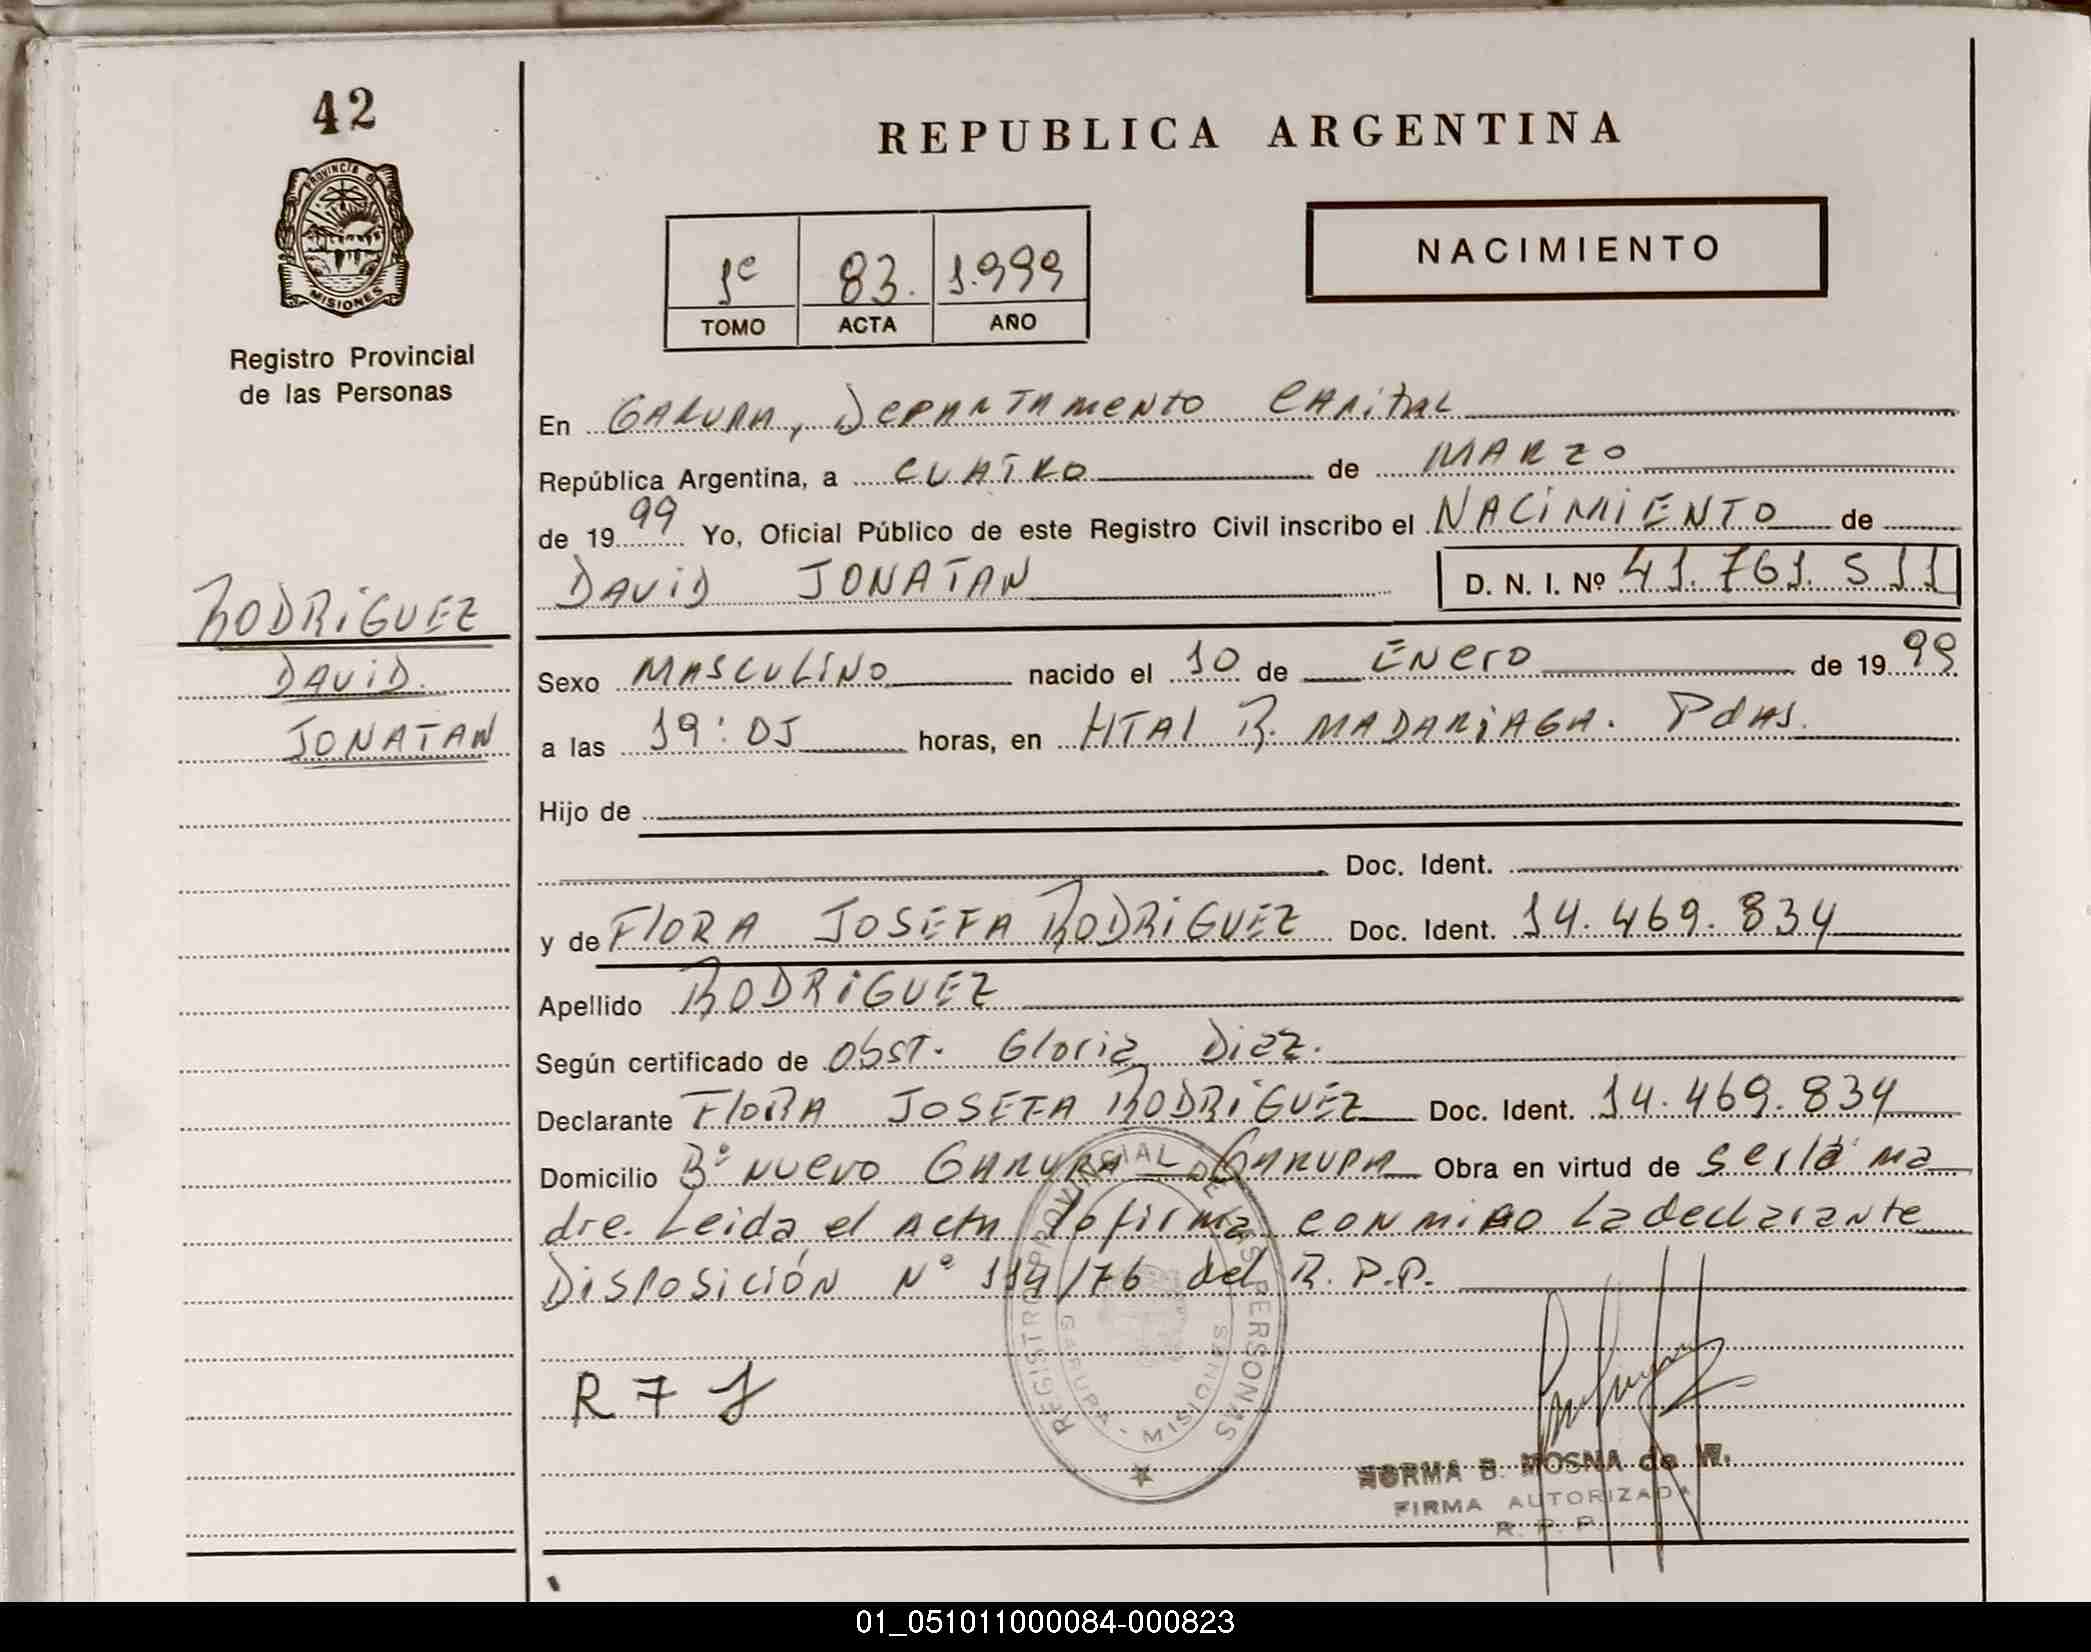 42
PROVINCIA DE
MISIONES
Registro Provincial
de las Personas
RODRIGUEZ
DAVID
JONATAN
REPUBLICA ARGENTINA
1º 83. 1.999
TOMO ACTA AÑO
NACIMIENTO
En GARUPA, DEPARTAMENTO CAPITAL
República Argentina, a CUATRO de MARZO
de 1999 Yo, Oficial Público de este Registro Civil inscribo el NACIMIENTO de
DAVID JONATAN D. N. I. Nº 41.761.511
Sexo MASCULINO nacido el 10 de ENERO de 1999
a las 19:05 horas, en HTAL R. MADARIAGA. Pdas.
Hijo de
Doc. Ident.
y de FLORA JOSEFA RODRIGUEZ Doc. Ident. 14.469.834
Apellido RODRIGUEZ
Según certificado de Obst. Gloria Diaz.
Declarante FLORA JOSEFA RODRIGUEZ Doc. Ident. 14.469.834
Domicilio Bº NUEVO GARUPA - GARUPA Obra en virtud de ser la ma
dre. Leida el Acta la firma conmigo la declarante
DISPOSICIÓN Nº 114/76 del R.P.P.
R 7 J
REGISTRO PROVINCIAL DE LAS PERSONAS
GARUPA - MISIONES
NORMA B. MOSNA de W.
FIRMA AUTORIZADA
R. P. P.
01_051011000084-000823